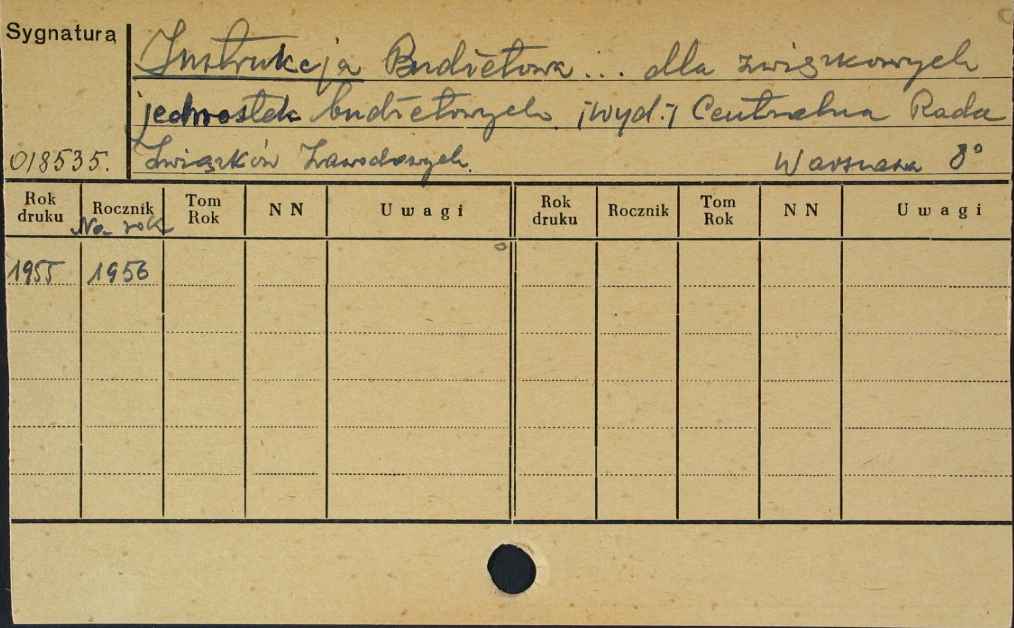 Sygnatura
Instrukcja Budżetowa ... dla związkowych
jednostek budżetowych /wyd./ Centralna Rada
018535. Związków Zawodowych. Warszawa 8°
Rok druku Rocznik Tom Rok N N Uwagi Rok druku Rocznik Tom Rok N N Uwagi
Na rok
1955 1956